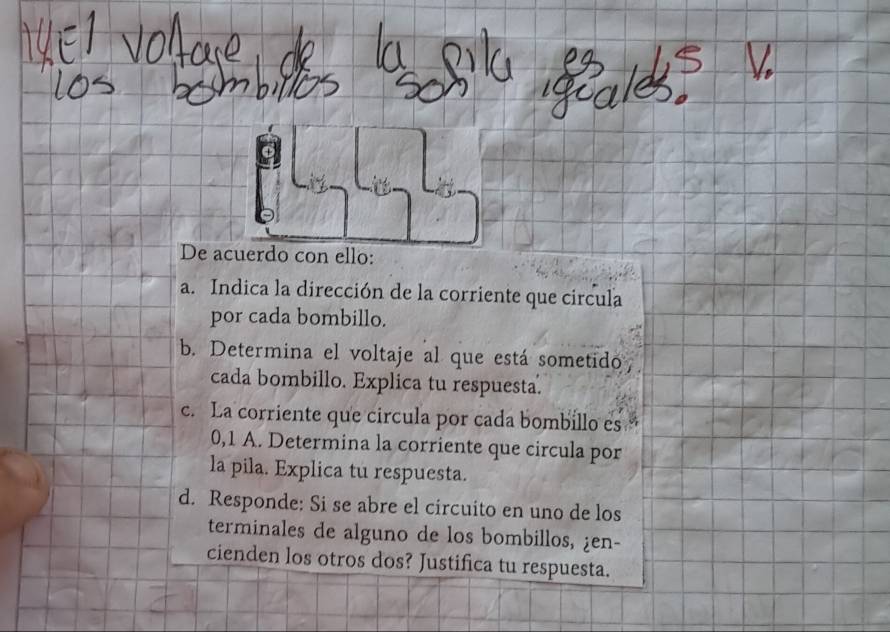 14. El voltage de la pila es 1,5 V.
los bombillos son iguales.
+
−
De acuerdo con ello:
a. Indica la dirección de la corriente que circula
por cada bombillo.
b. Determina el voltaje al que está sometido
cada bombillo. Explica tu respuesta.
c. La corriente que circula por cada bombillo es
0,1 A. Determina la corriente que circula por
la pila. Explica tu respuesta.
d. Responde: Si se abre el circuito en uno de los
terminales de alguno de los bombillos, ¿en-
cienden los otros dos? Justifica tu respuesta.